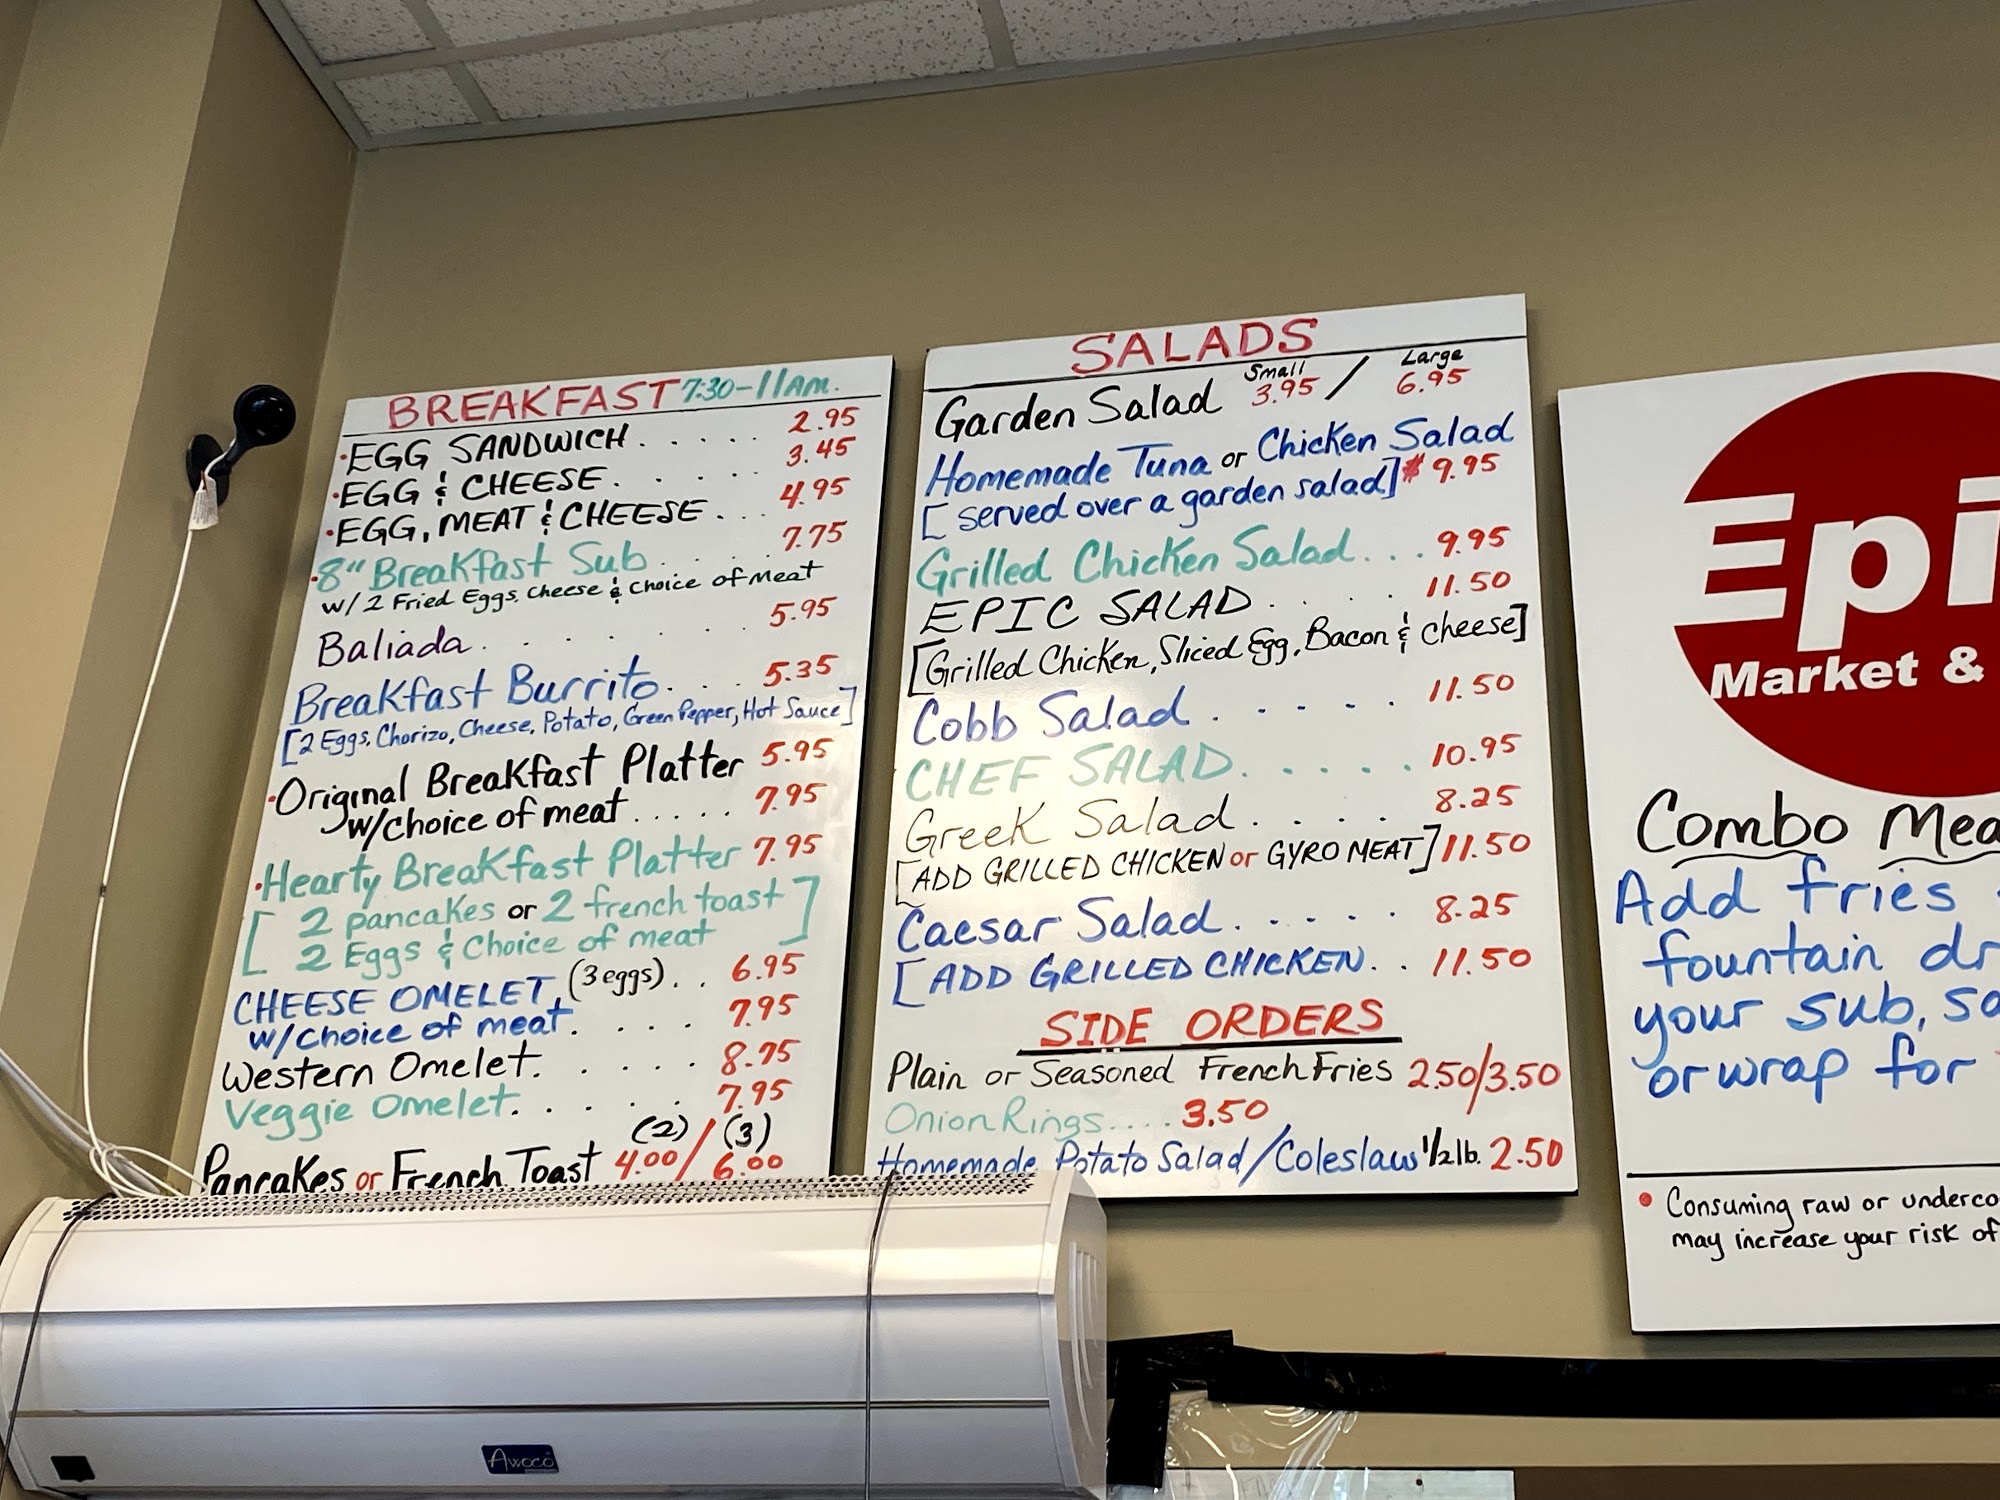 BREAKFAST 7:30-11AM.
•EGG SANDWICH..... 2.95
•EGG & CHEESE..... 3.45
•EGG, MEAT & CHEESE... 4.95
•8" Breakfast Sub.... 7.75
w/ 2 Fried Eggs, Cheese & Choice of Meat
Baliada....... 5.95
Breakfast Burrito... 5.35
[2 Eggs, Chorizo, Cheese, Potato, Green Pepper, Hot Sauce]
•Original Breakfast Platter 5.95
w/choice of meat..... 7.95
•Hearty Breakfast Platter 7.95
[2 pancakes or 2 french toast
2 Eggs & Choice of meat]
CHEESE OMELET, (3 eggs)... 6.95
w/choice of meat.... 7.95
Western Omelet..... 8.75
Veggie Omelet..... 7.95
(2) / (3)
Pancakes or French Toast 4.00 / 6.00
SALADS
Small / Large
Garden Salad 3.95 / 6.95
Homemade Tuna or Chicken Salad
[served over a garden salad] $9.95
Grilled Chicken Salad... 9.95
EPIC SALAD..... 11.50
[Grilled Chicken, Sliced Egg, Bacon & Cheese]
Cobb Salad..... 11.50
CHEF SALAD..... 10.95
Greek Salad.... 8.25
[ADD GRILLED CHICKEN or GYRO MEAT] 11.50
Caesar Salad..... 8.25
[ADD GRILLED CHICKEN.. 11.50
SIDE ORDERS
Plain or Seasoned French Fries 2.50/3.50
Onion Rings.... 3.50
Homemade Potato Salad/Coleslaw 1/2 lb. 2.50
Epi
Market &
Combo Mea
Add fries
fountain dr
your sub, sa
or wrap for
• Consuming raw or underco
may increase your risk of
Awoco